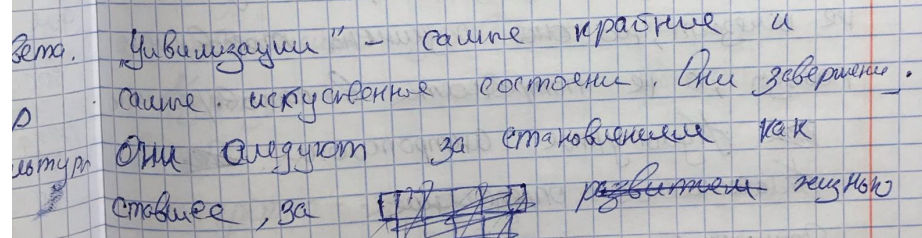 вета. „Цивилизации" – самые крайние и
самые искуственные состояни. Они завершени.
Они следуют за становлением как
льтур ставшее, за развитием жизнью